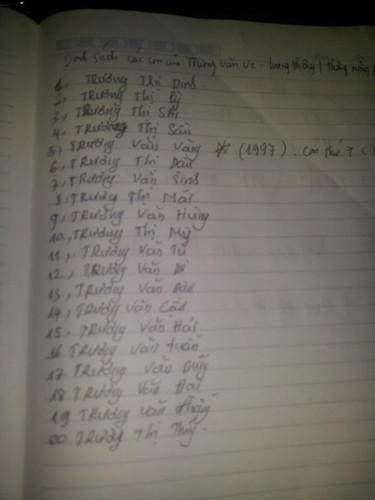 Danh sách các con của Trương Văn Vẻ - lương tháng / tháng năm /
1, TRương Thị Dinh
2, TRương Thị Lý
3, TRương Thị Sửu
4, TRương Thị Sản
5, TRương Văn Vàng (1997). con thứ 7
6, TRương Thị Dần
7, TRương Văn Sinh
8, TRương Thị Mái
9, TRương Văn Hùng
10, TRương Thị Mỹ
11, TRương Văn Tú
12, TRương Văn Dĩ
13, TRương Văn Dàn
14, TRương Văn Cầu
15, TRương Văn Hải
16 TRương Văn tuấn
17 TRương Văn Dũng
18 TRương Văn Đại
19 TRương Văn thắng
20 TRương Thị Thủy.